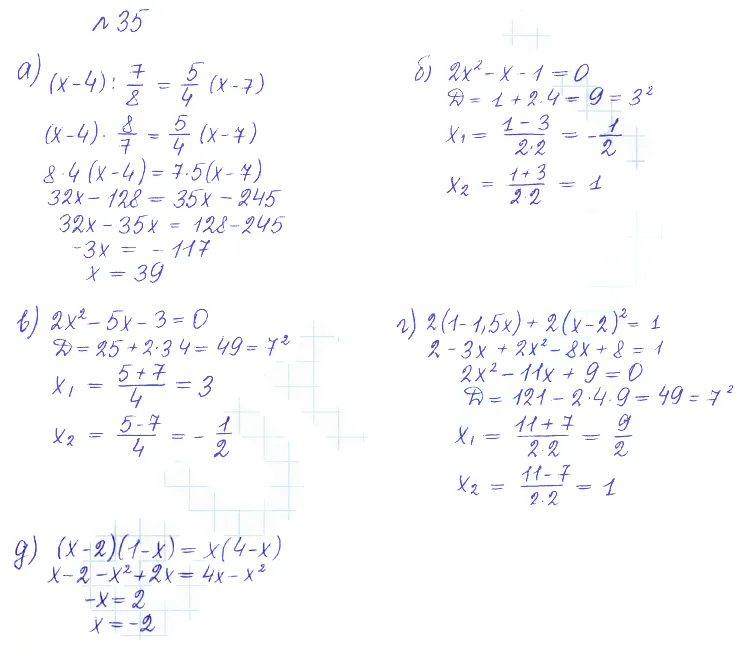 № 35
а) (x-4) : 7/8 = 5/4 (x-7)
(x-4) · 8/7 = 5/4 (x-7)
8·4 (x-4) = 7·5(x-7)
32x - 128 = 35x - 245
32x - 35x = 128 - 245
-3x = -117
x = 39
б) 2x² - x - 1 = 0
Д = 1 + 2·4 = 9 = 3²
x₁ = (1-3)/(2·2) = -1/2
x₂ = (1+3)/(2·2) = 1
в) 2x² - 5x - 3 = 0
Д = 25 + 2·3 4 = 49 = 7²
x₁ = (5+7)/4 = 3
x₂ = (5-7)/4 = -1/2
г) 2(1-1,5x) + 2(x-2)² = 1
2 - 3x + 2x² - 8x + 8 = 1
2x² - 11x + 9 = 0
Д = 121 - 2·4·9 = 49 = 7²
x₁ = (11+7)/(2·2) = 9/2
x₂ = (11-7)/(2·2) = 1
д) (x-2)(1-x) = x(4-x)
x - 2 - x² + 2x = 4x - x²
-x = 2
x = -2